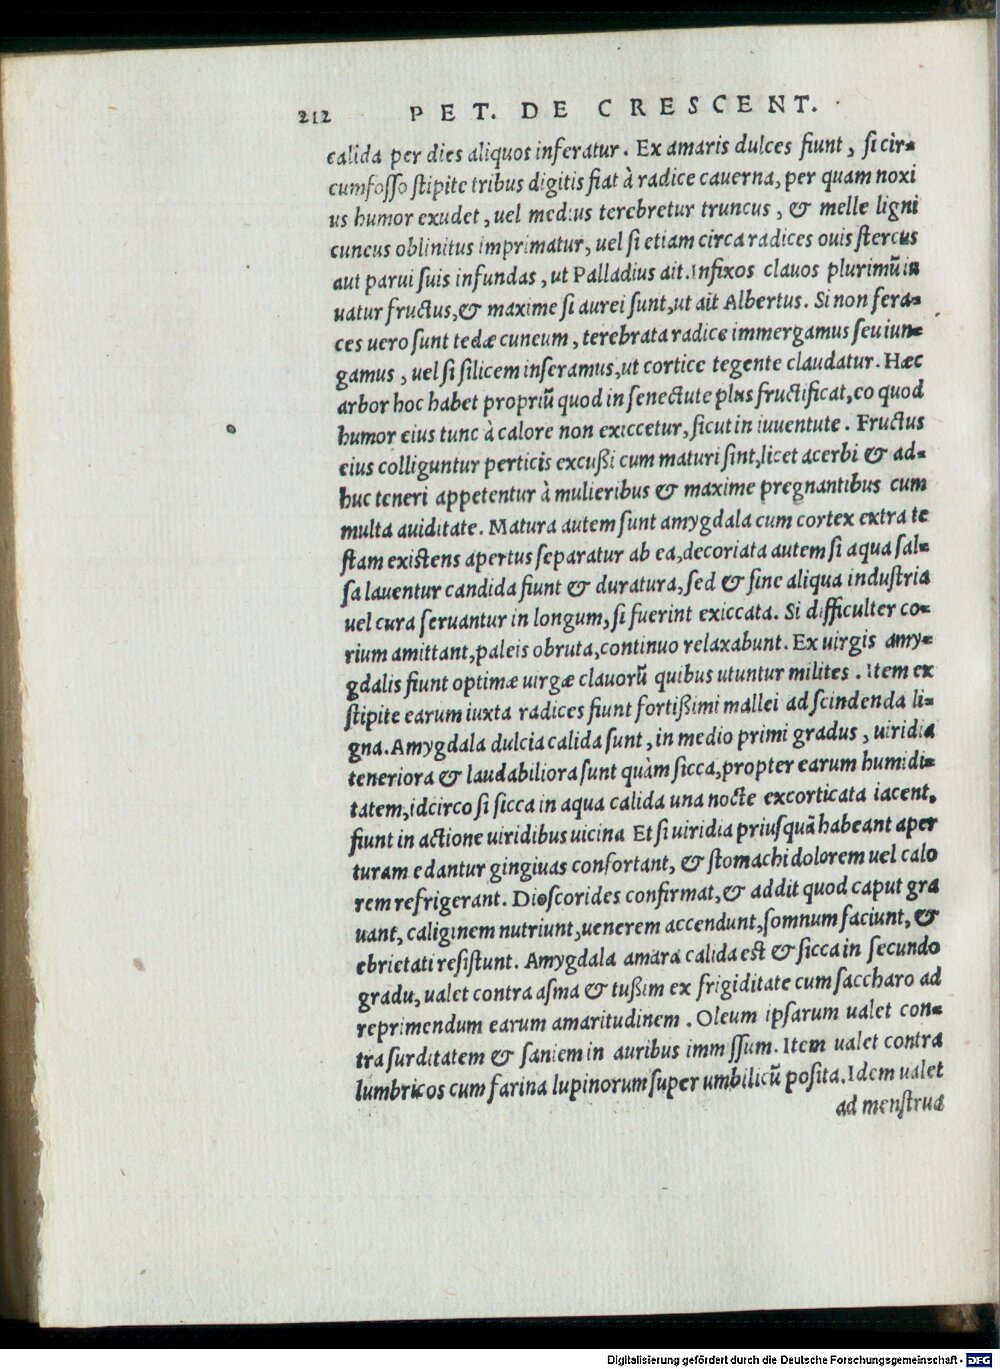 212 PET. DE CRESCENT.
calida per dies aliquos inferatur. Ex amaris dulces fiunt, si cir=
cumfosso stipite tribus digitis fiat à radice cauerna, per quam noxi
us humor exudet, uel medius terebretur truncus, & melle ligni
cuneus oblinitus imprimatur, uel si etiam circa radices ouis stercus
aut parui suis infundas, ut Palladius ait. Infixos clauos plurimũ iu
uatur fructus, & maxime si aurei sunt, ut ait Albertus. Si non fera=
ces uero sunt tedæ cuneum, terebrata radice immergamus seu iun=
gamus, uel si silicem inseramus, ut cortice tegente claudatur. Hæc
arbor hoc habet propriũ quod in senectute plus fructificat, eo quod
humor eius tunc à calore non exiccetur, sicut in iuuentute. Fructus
eius colliguntur perticis excußi cum maturi sint, licet acerbi & ad=
huc teneri appetentur à mulieribus & maxime pregnantibus cum
multa auiditate. Matura autem sunt amygdala cum cortex extra te
stam existens apertus separatur ab ea, decoriata autem si aqua sal=
sa lauentur candida fiunt & duratura, sed & sine aliqua industria
uel cura seruantur in longum, si fuerint exiccata. Si difficulter co=
rium amittant, paleis obruta, continuo relaxabunt. Ex uirgis amy=
gdalis fiunt optimæ uirgæ clauorũ quibus utuntur milites. Item ex
stipite earum iuxta radices fiunt fortißimi mallei ad scindenda li=
gna. Amygdala dulcia calida sunt, in medio primi gradus, uiridia
teneriora & laudabiliora sunt quàm sicca, propter earum humidi=
tatem, idcirco si sicca in aqua calida una nocte excorticata iacent,
fiunt in actione uiridibus uicina Et si uiridia priusquã habeant aper
turam edantur gingiuas confortant, & stomachi dolorem uel calo
rem refrigerant. Dioscorides confirmat, & addit quod caput gra
uant, caliginem nutriunt, uenerem accendunt, somnum faciunt, &
ebrietati resistunt. Amygdala amara calida est & sicca in secundo
gradu, ualet contra asma & tußim ex frigiditate cum saccharo ad
reprimendum earum amaritudinem. Oleum ipsarum ualet con=
tra surditatem & saniem in auribus immissum. Item ualet contra
lumbricos cum farina lupinorum super umbilicũ posita. Idem ualet
ad menstrua
Digitalisierung gefördert durch die Deutsche Forschungsgemeinschaft - DFG